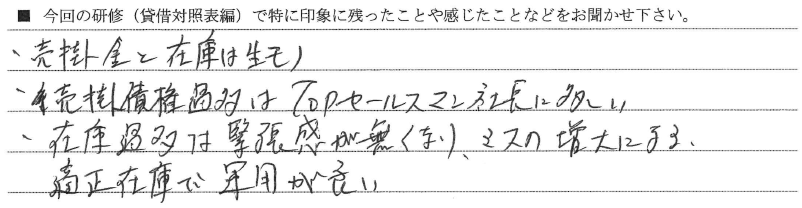 ■ 今回の研修（貸借対照表編）で特に印象に残ったことや感じたことなどをお聞かせ下さい。
・売掛金と在庫は生モノ
・売掛債権過多はTopセールスマン社長に多い
・在庫過多は緊張感が無くなり、ミスの増大になる、
適正在庫で運用が良い